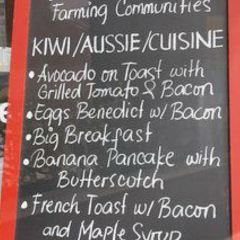 Farming Communities
KIWI/AUSSIE/CUISINE
• Avocado on Toast with
Grilled Tomato & Bacon
• Eggs Benedict w/ Bacon
• Big Breakfast
• Banana Pancake with
Butterscotch
• French Toast w/ Bacon
and Maple Syrup